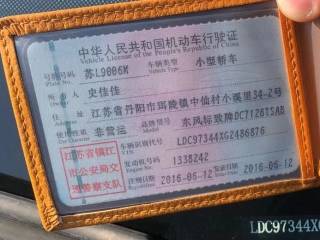 中华人民共和国机动车行驶证
Vehicle License of the People's Republic of China
号牌号码 苏L9086M 车辆类型 小型轿车
Plate No. Vehicle Type
所有人 史佳佳
住址 江苏省丹阳市珥陵镇中仙村小溪里34-2号
使用性质 非营运 品牌型号 东风标致牌DC7126TSAB
江苏省镇江
市公安局交
通警察支队
车辆识别代号 LDC97344XG2486876
发动机号码 1338242
注册日期 2016-06-12 发证日期 2016-06-12
LDC97344X